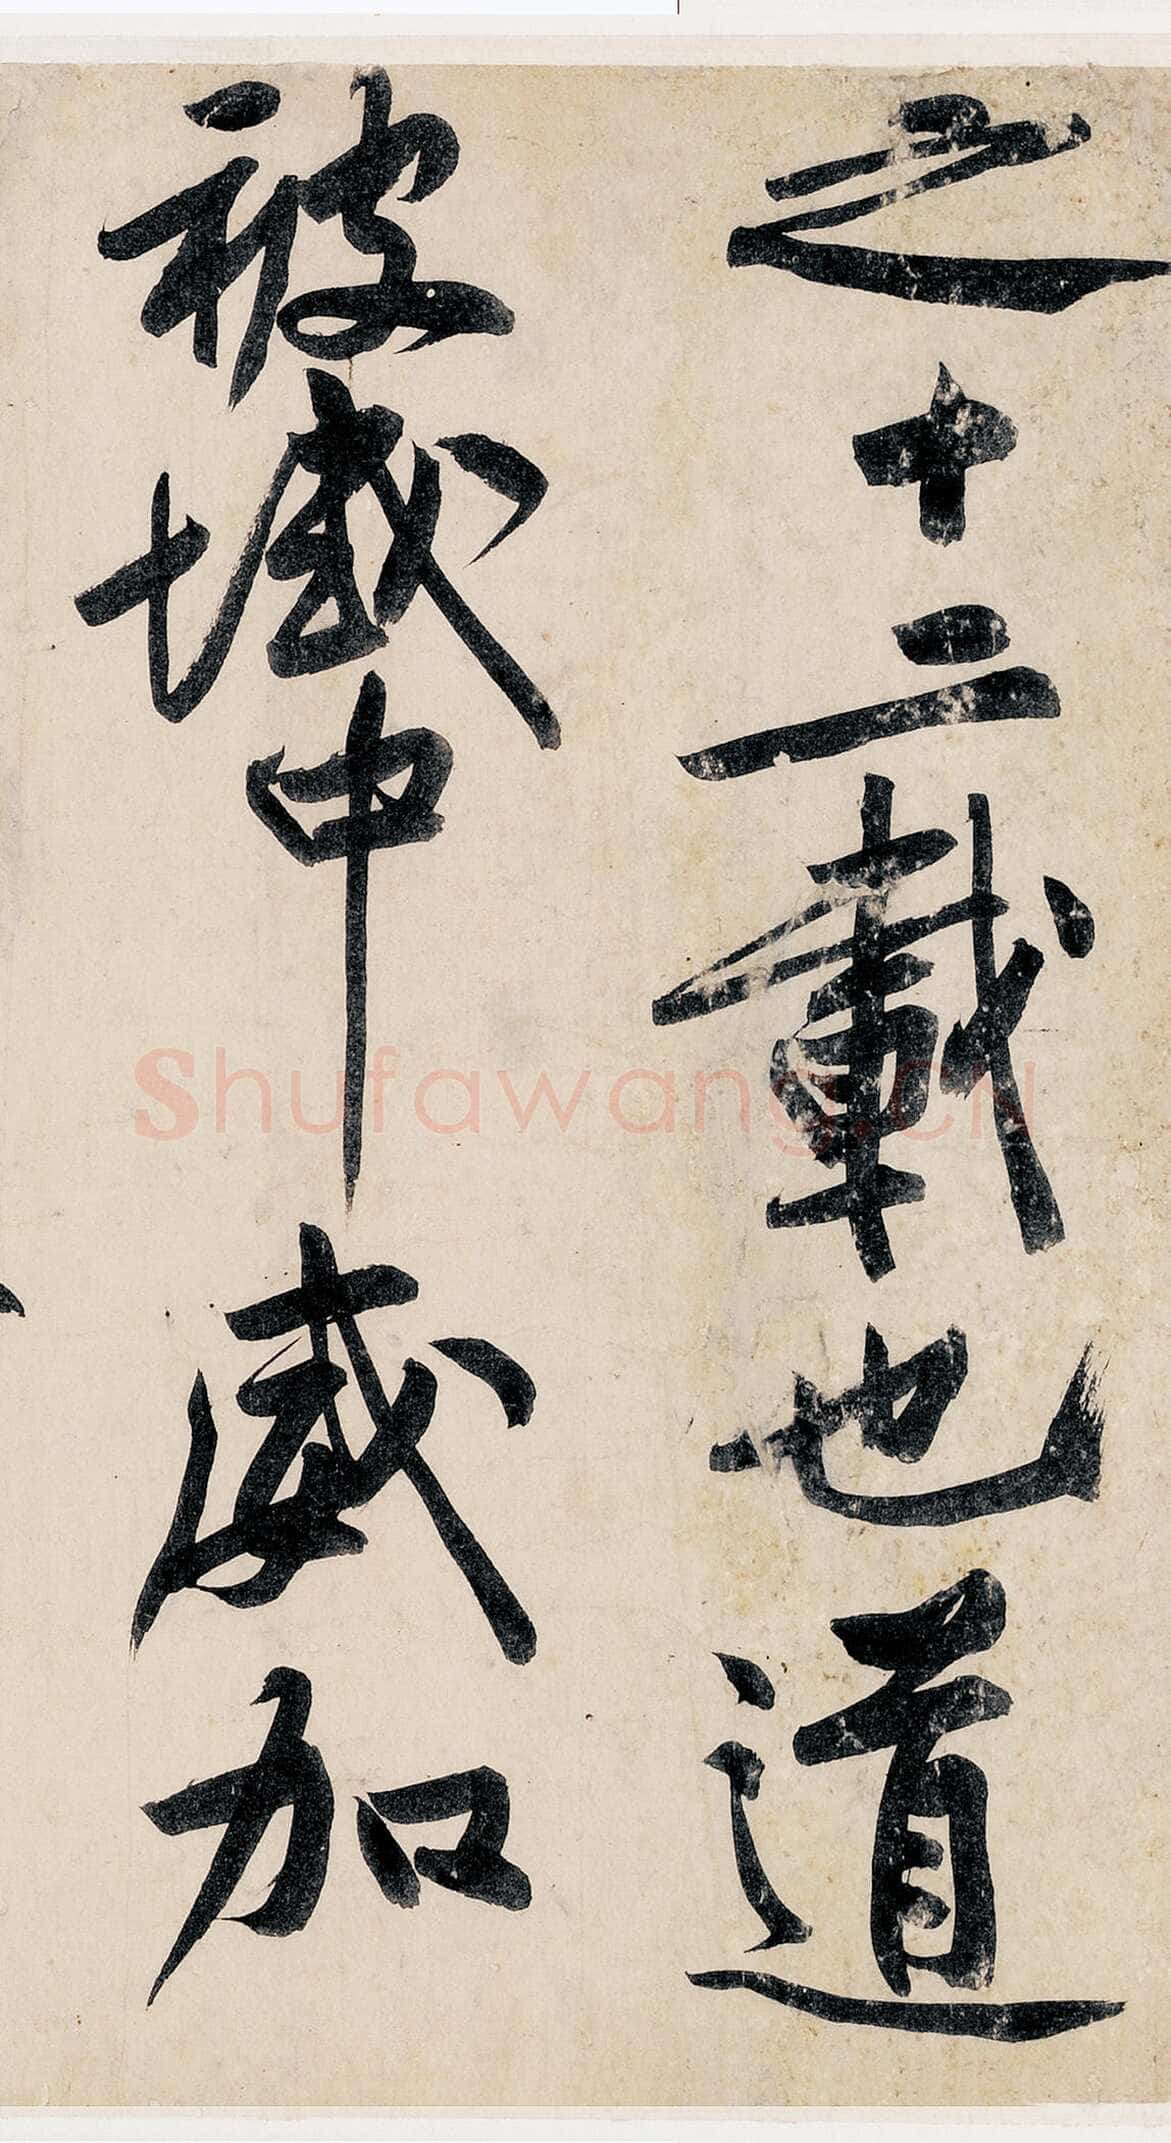 之十二載也道
被域中威加
Shufawang.CN